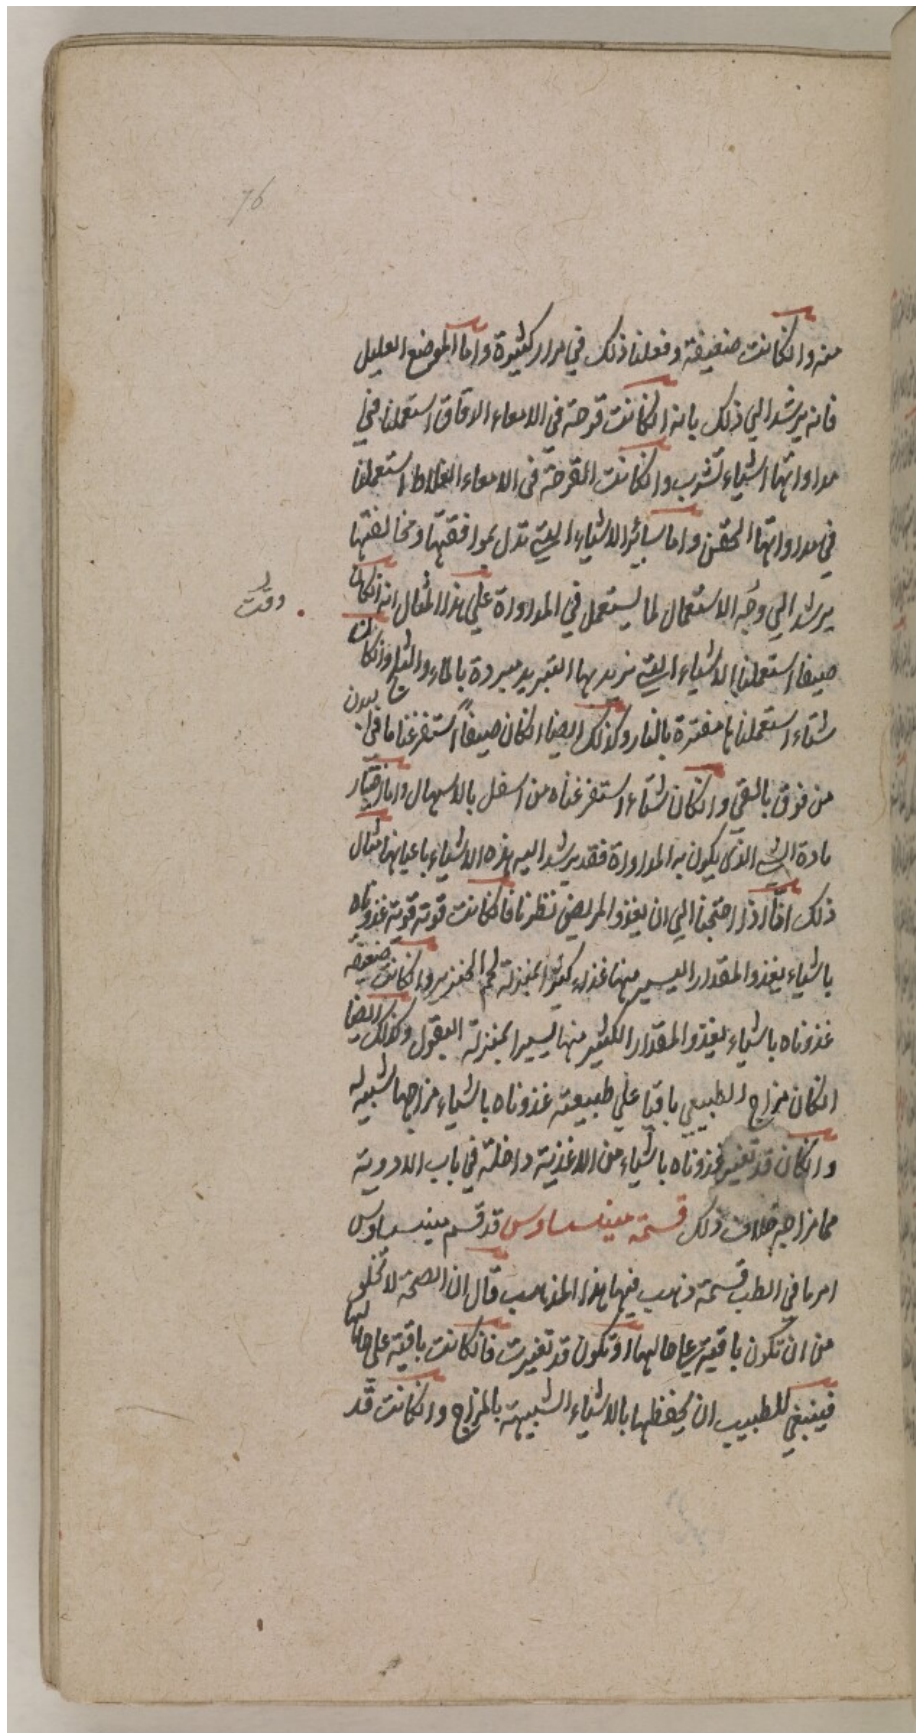 76
منه وان كانت ضعيفة وفعلنا ذلك في مرار كثيرة واما الموضع العليل
فانه يرشد الي ذلك بانه ان كانت قرحة في الامعاء الدقاق استعملنا في
مداواتها اشياء تشرب وان كانت القرحة في الامعاء الغلاظ استعملنا
في مداواتها الحقن واما سائر الاشياء التي تدل بموافقتها ومخالفتها
يرشد الي وجه الاستعمال لما يستعمل في المداواة علي هذا المثال انه ان كان
وقت
صيفا استعملنا الاشياء التي نريد بها التبريد مبردة بالماء والثلج وان كان
شتاء استعملناها مفترة بالنار وكذلك ايضا ان كان صيفا استفرغنا ما في البدن
من فوق بالقي وان كان شتاء استفرغناه من اسفل بالاسهال واما اختيار
مادة الشي الذي يكون به المداواة فقد يرشد اليه هذه الاشياء باعيانها مثال
ذلك انا اذا احتجنا الي ان يغذو المريض نظرنا فان كانت قوته قوية غذوناه
باشياء يغذو المقدار اليسير منها غذاء كثيرا بمنزلة لحم الخنزير وان كانت ضعيفة
غذوناه باشياء يغذو المقدار الكثير منها يسيرا بمنزلة البقول وكذلك ايضا
ان كان مزاج الطبيعي باقيا علي طبيعته غذوناه باشياء مزاجها شبيه له
وان كان قد تغير غذوناه باشياء من الاغذية داخلة في باب الادوية
مما مزاجه خلاف ذلك قسمة مينسىاوس قد قسم مينسىاوس
امر ما في الطب قسمة ذهب فيها هذا المذهب قال ان الصحة لا تخلو
من ان تكون باقية علي حالها او تكون قد تغيرت فان كانت باقية علي حالها
فينبغي للطبيب ان يحفظها بالاشياء الشبيهة بالمزاج وان كانت قد